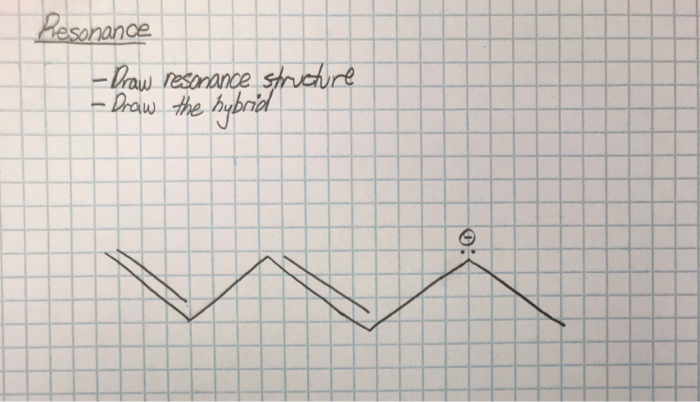 Resonance
- Draw resonance structure
- Draw the hybrid
⊖